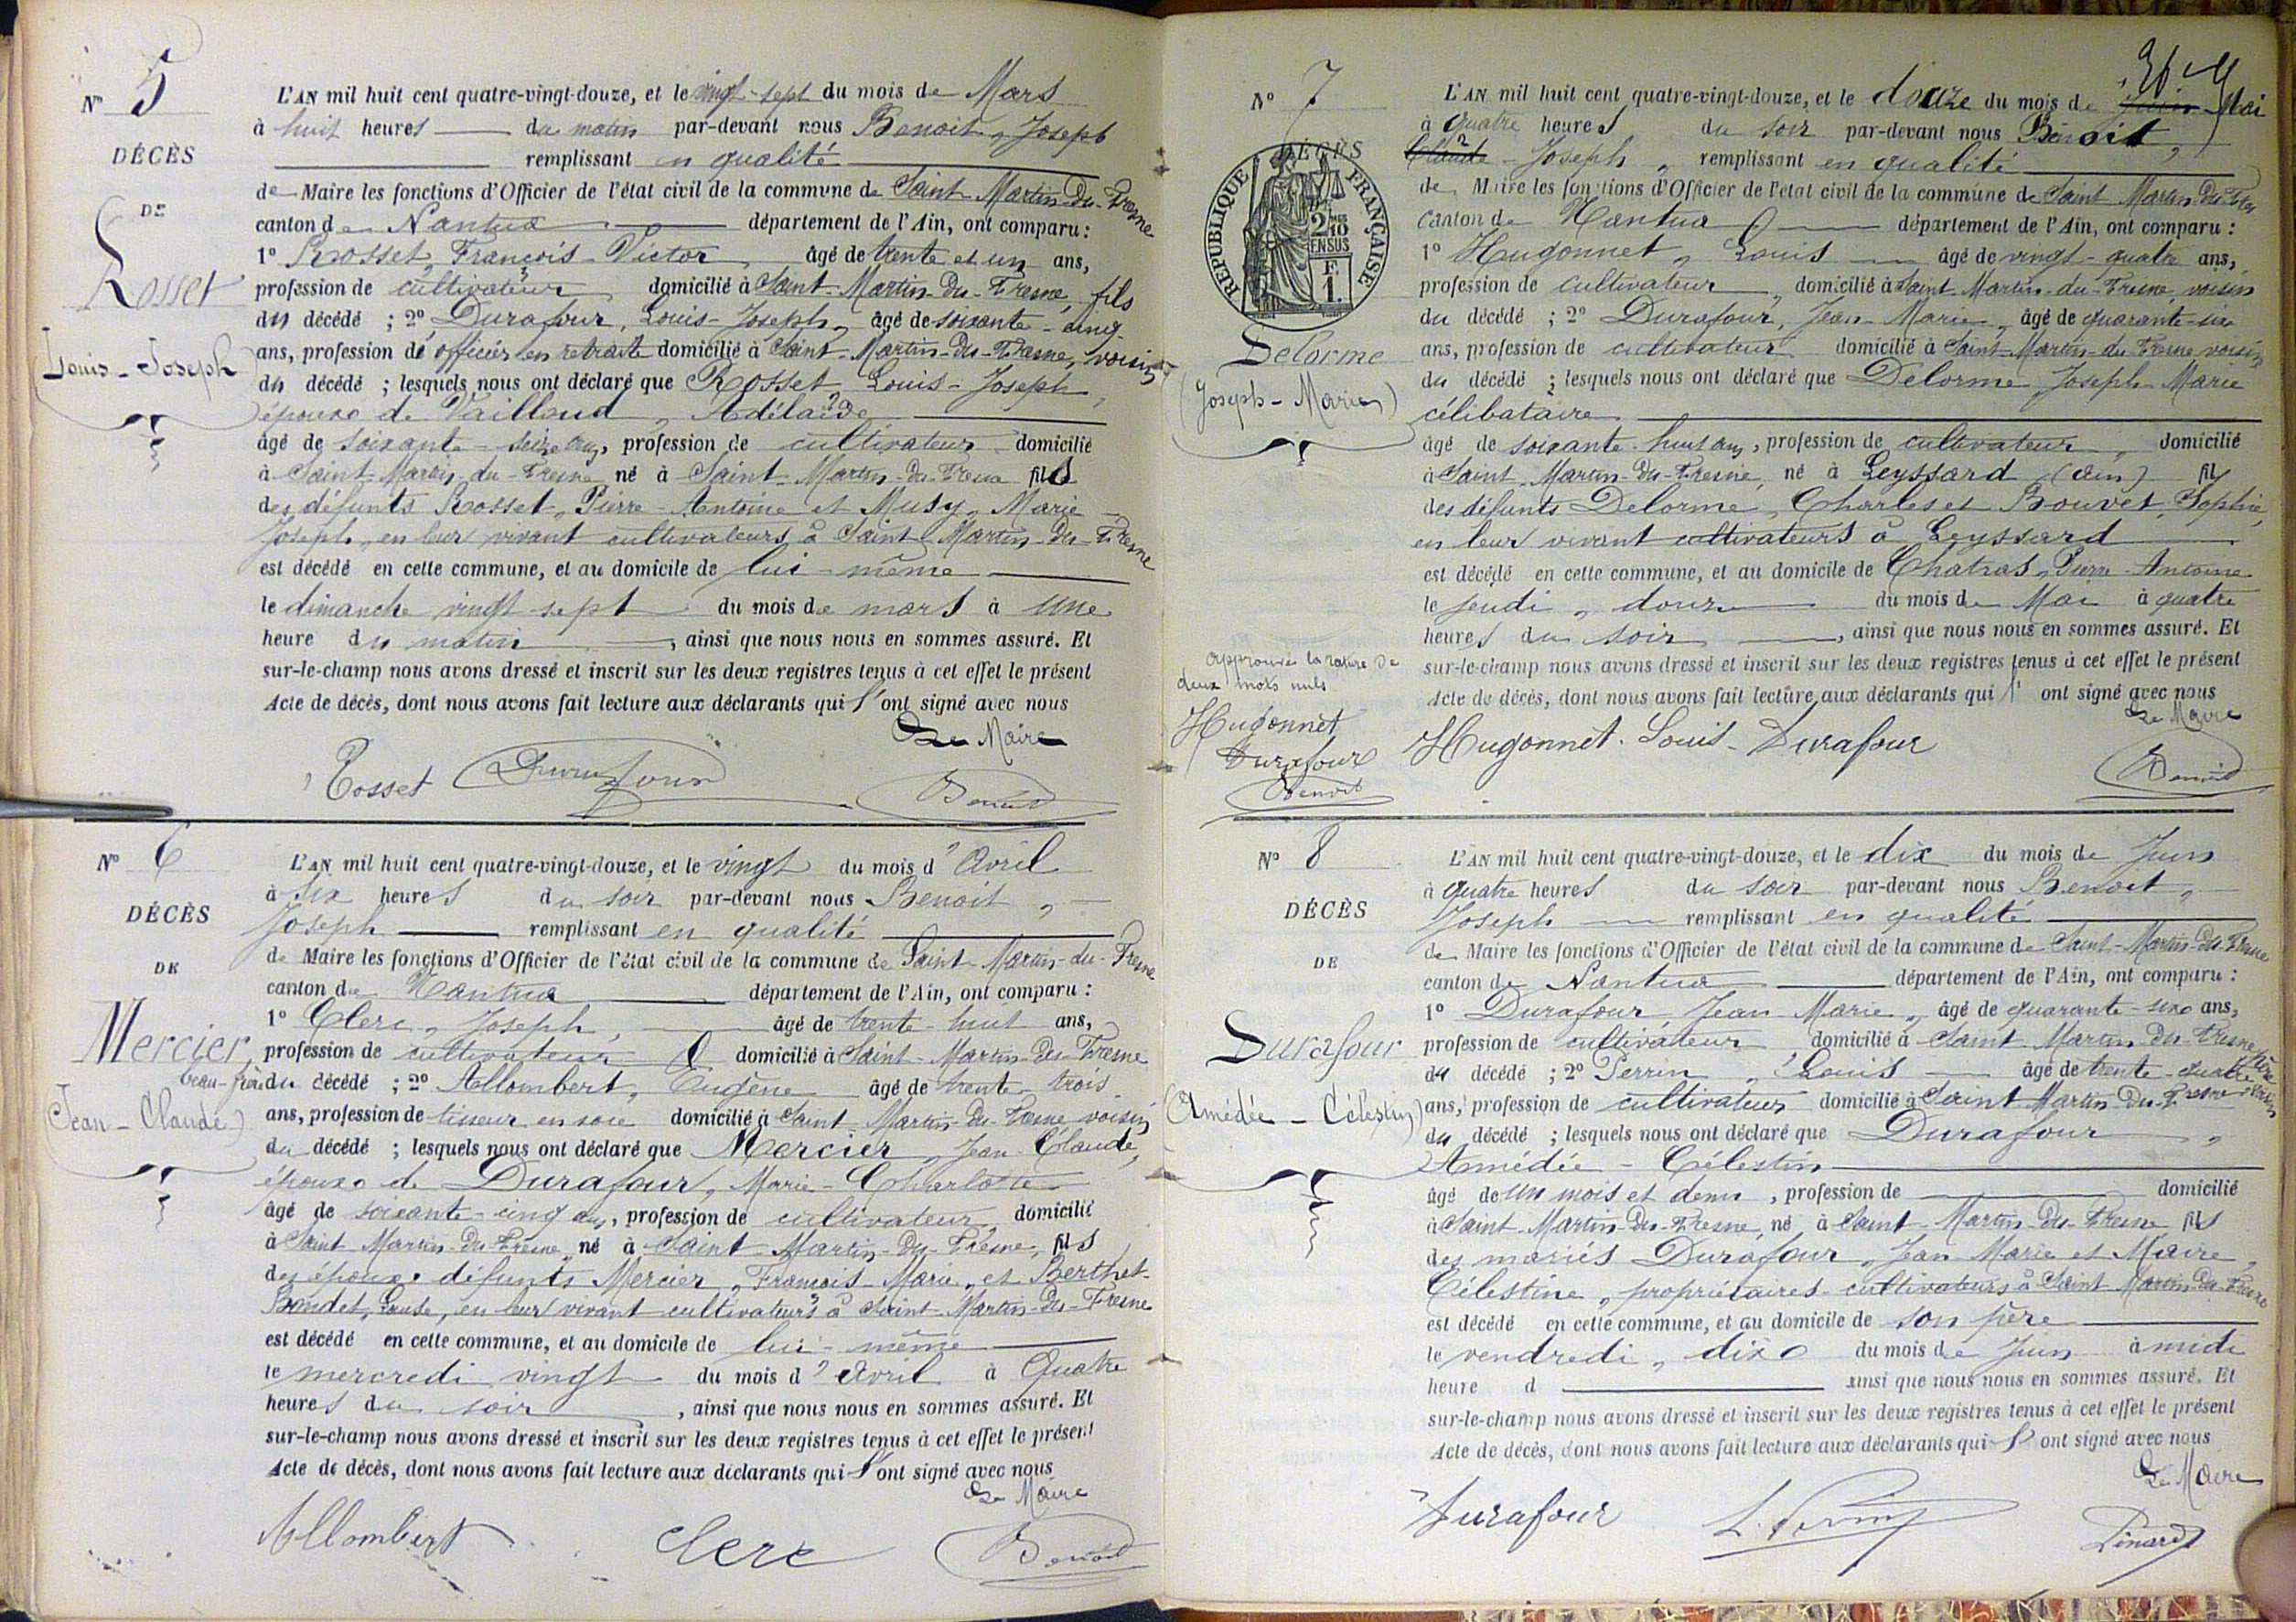 N° 5
DÉCÈS
DE
Rosset
(Louis-Joseph)
L'AN mil huit cent quatre-vingt-douze, et le vingt-sept du mois de Mars
à huit heures du matin par-devant nous Benoit, Joseph
remplissant en qualité
de Maire les fonctions d'Officier de l'état civil de la commune de Saint-Martin-du-Fresne
canton de Nantua département de l'Ain, ont comparu :
1° Rosset, François-Victor, âgé de trente et un ans,
profession de cultivateur domicilié à Saint-Martin-du-Fresne, fils
du décédé ; 2° Durafour, Louis-Joseph, âgé de soixante-cinq
ans, profession d'officier en retraite domicilié à Saint-Martin-du-Fresne, voisin
du décédé ; lesquels nous ont déclaré que Rosset, Louis-Joseph,
époux de Vailloud, Adélaïde
âgé de soixante-seize ans, profession de cultivateur domicilié
à Saint-Martin-du-Fresne né à Saint-Martin-du-Fresne fils
des défunts Rosset, Pierre-Antoine et Musy, Marie-
Joseph, en leur vivant cultivateurs à Saint-Martin-du-Fresne
est décédé en cette commune, et au domicile de lui-même
le dimanche vingt-sept du mois de mars à une
heure du matin, ainsi que nous nous en sommes assuré. Et
sur-le-champ nous avons dressé et inscrit sur les deux registres tenus à cet effet le présent
Acte de décès, dont nous avons fait lecture aux déclarants qui l'ont signé avec nous
Le Maire
Rosset Durafour Benoit
N° 6
DÉCÈS
DE
Mercier
(Jean-Claude)
L'AN mil huit cent quatre-vingt-douze, et le vingt du mois d'Avril
à six heures du soir par-devant nous Benoit,
Joseph remplissant en qualité
de Maire les fonctions d'Officier de l'état civil de la commune de Saint-Martin-du-Fresne
canton de Nantua département de l'Ain, ont comparu :
1° Clerc, Joseph, âgé de trente-huit ans,
profession de cultivateur domicilié à Saint-Martin-du-Fresne
beau-frère du décédé ; 2° Allombert, Eugène âgé de trente-trois
ans, profession de tisseur en soie domicilié à Saint-Martin-du-Fresne, voisin
du décédé ; lesquels nous ont déclaré que Mercier, Jean-Claude,
époux de Durafour, Marie-Charlotte
âgé de soixante-cinq ans, profession de cultivateur, domicilié
à Saint-Martin-du-Fresne, né à Saint-Martin-du-Fresne, fils
des époux défunts Mercier, François-Marie, et Berthet-
Bondet, Louise, en leur vivant cultivateurs à Saint-Martin-du-Fresne
est décédé en cette commune, et au domicile de lui-même
le mercredi vingt du mois d'Avril à Quatre
heures du soir, ainsi que nous nous en sommes assuré. Et
sur-le-champ nous avons dressé et inscrit sur les deux registres tenus à cet effet le présent
Acte de décès, dont nous avons fait lecture aux déclarants qui l'ont signé avec nous
Le Maire
Allombert Clerc Benoit
N° 7
DÉCÈS
RÉPUBLIQUE FRANÇAISE
2 MES 10 EN SUS
F. 1.
Delorme
(Joseph-Marie)
L'AN mil huit cent quatre-vingt-douze, et le douze du mois de Juin Mai
à quatre heures du soir par-devant nous Benoit,
Claude-Joseph, remplissant en qualité
de Maire les fonctions d'Officier de l'état civil de la commune de Saint-Martin-du-Fres
canton de Nantua département de l'Ain, ont comparu :
1° Hugonnet, Louis âgé de vingt-quatre ans,
profession de cultivateur, domicilié à Saint-Martin-du-Fresne, voisin
du décédé ; 2° Durafour, Jean-Marie, âgé de quarante-six
ans, profession de cultivateur domicilié à Saint-Martin-du-Fresne voisin
du décédé ; lesquels nous ont déclaré que Delorme, Joseph-Marie
célibataire
âgé de soixante-huit ans, profession de cultivateur, domicilié
à Saint-Martin-du-Fresne, né à Leyssard (Ain) fils
des défunts Delorme, Charles et Bouvet, Sophie,
en leur vivant cultivateurs à Leyssard
est décédé en cette commune, et au domicile de Chatras, Pierre-Antoine
le jeudi, douze du mois de Mai à quatre
heures du soir, ainsi que nous nous en sommes assuré. Et
sur-le-champ nous avons dressé et inscrit sur les deux registres tenus à cet effet le présent
Acte de décès, dont nous avons fait lecture aux déclarants qui l'ont signé avec nous
Le Maire
Approuvé la rature de
deux mots nuls
Hugonnet
Durafour
Benoit
Hugonnet. Louis- Durafour Benoit
N° 8
DÉCÈS
DE
Durafour
(Amédée-Célestin)
L'AN mil huit cent quatre-vingt-douze, et le dix du mois de Juin
à quatre heures du soir par-devant nous Benoit,
Joseph remplissant en qualité
de Maire les fonctions d'Officier de l'état civil de la commune de Saint-Martin-du-Fresne
canton de Nantua département de l'Ain, ont comparu :
1° Durafour, Jean-Marie, âgé de quarante-six ans,
profession de cultivateur domicilié à Saint-Martin-du-Fresne, père
du décédé ; 2° Perrin, Louis âgé de trente-quatre
ans, profession de cultivateur domicilié à Saint-Martin-du-Fresne voisin
du décédé ; lesquels nous ont déclaré que Durafour,
Amédée-Célestin
âgé de un mois et demi, profession de domicilié
à Saint-Martin-du-Fresne, né à Saint-Martin-du-Fresne fils
des mariés Durafour, Jean-Marie et Maire,
Célestine, propriétaires-cultivateurs à Saint-Martin-du-Fresne
est décédé en cette commune, et au domicile de son père
le vendredi, dix du mois de Juin à midi
heure d ainsi que nous nous en sommes assuré. Et
sur-le-champ nous avons dressé et inscrit sur les deux registres tenus à cet effet le présent
Acte de décès, dont nous avons fait lecture aux déclarants qui l'ont signé avec nous
Le Maire
Durafour L. Perrin